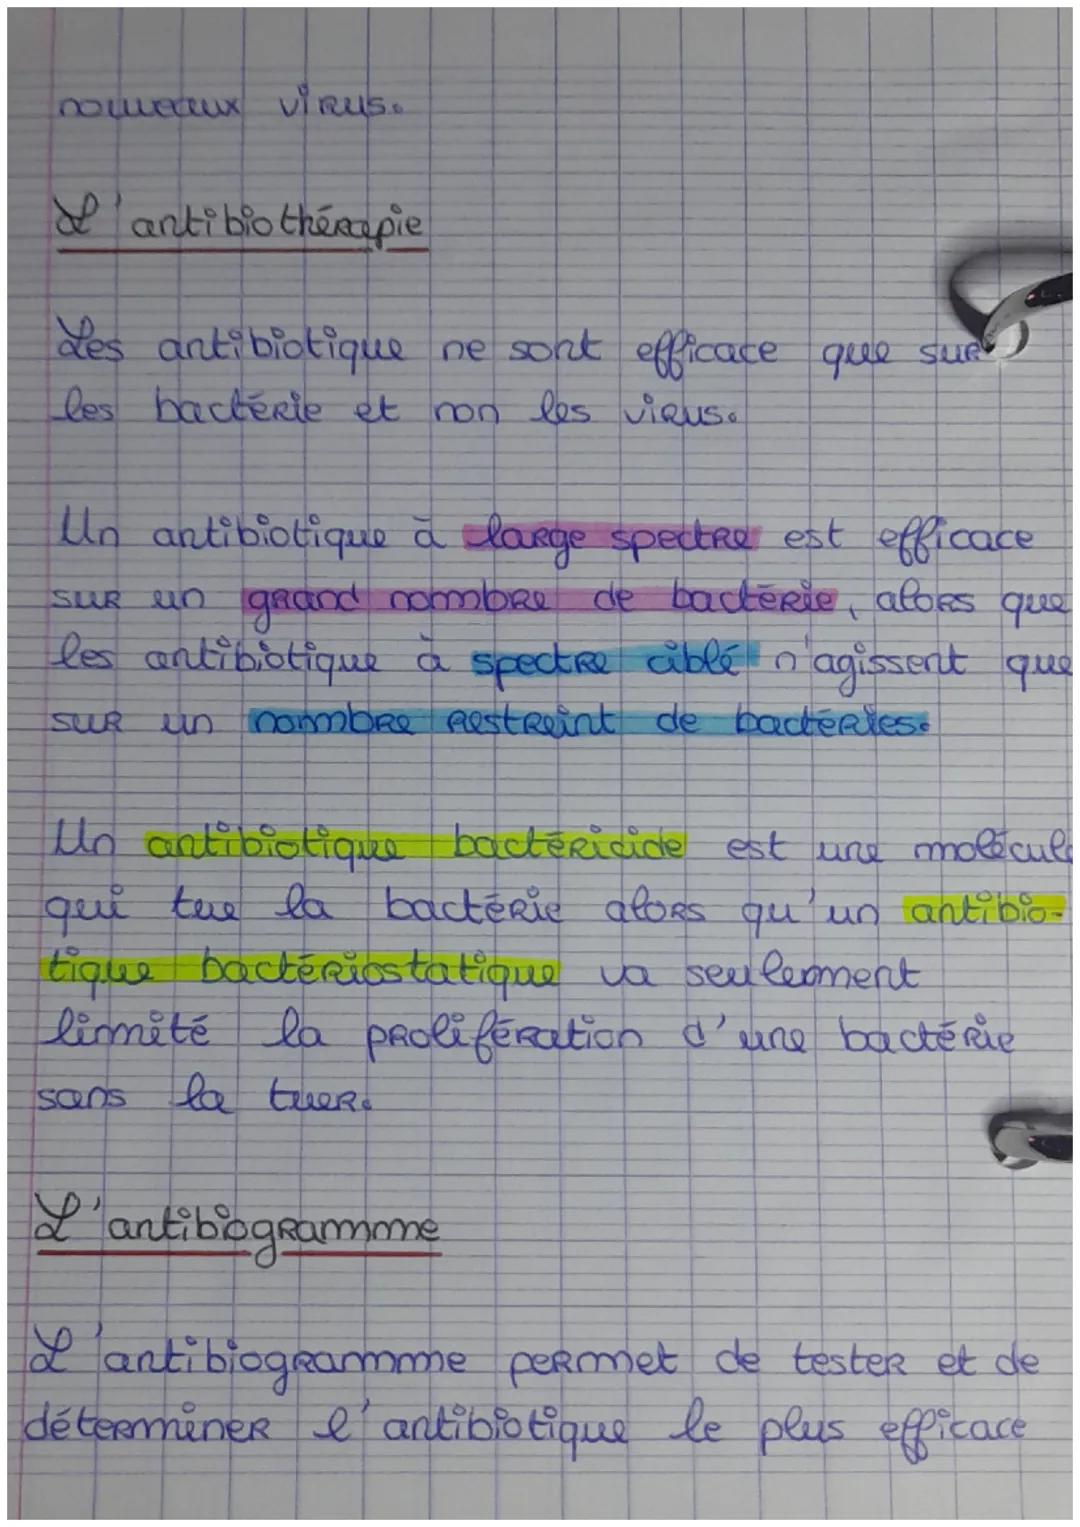 nouveaux virus.
L'antibiothérapie
Les antibiotique ne sont efficace que sur
les bactérie et non les virus.
Un antibiotique à large spectre est efficace
sur un grand nombre de bactérie, alors que
les antibiotique à spectre ciblé n'agissent que
sur un nombre restreint de bactéries.
Un antibiotique bactéricide est une molécule
qui tue la bactérie alors qu'un antibio-
tique bactériostatique va seulement
limité la prolifération d'une bactérie
sans la tuer.
L'antibiogramme
L'antibiogramme permet de tester et de
déterminer l'antibiotique le plus efficace